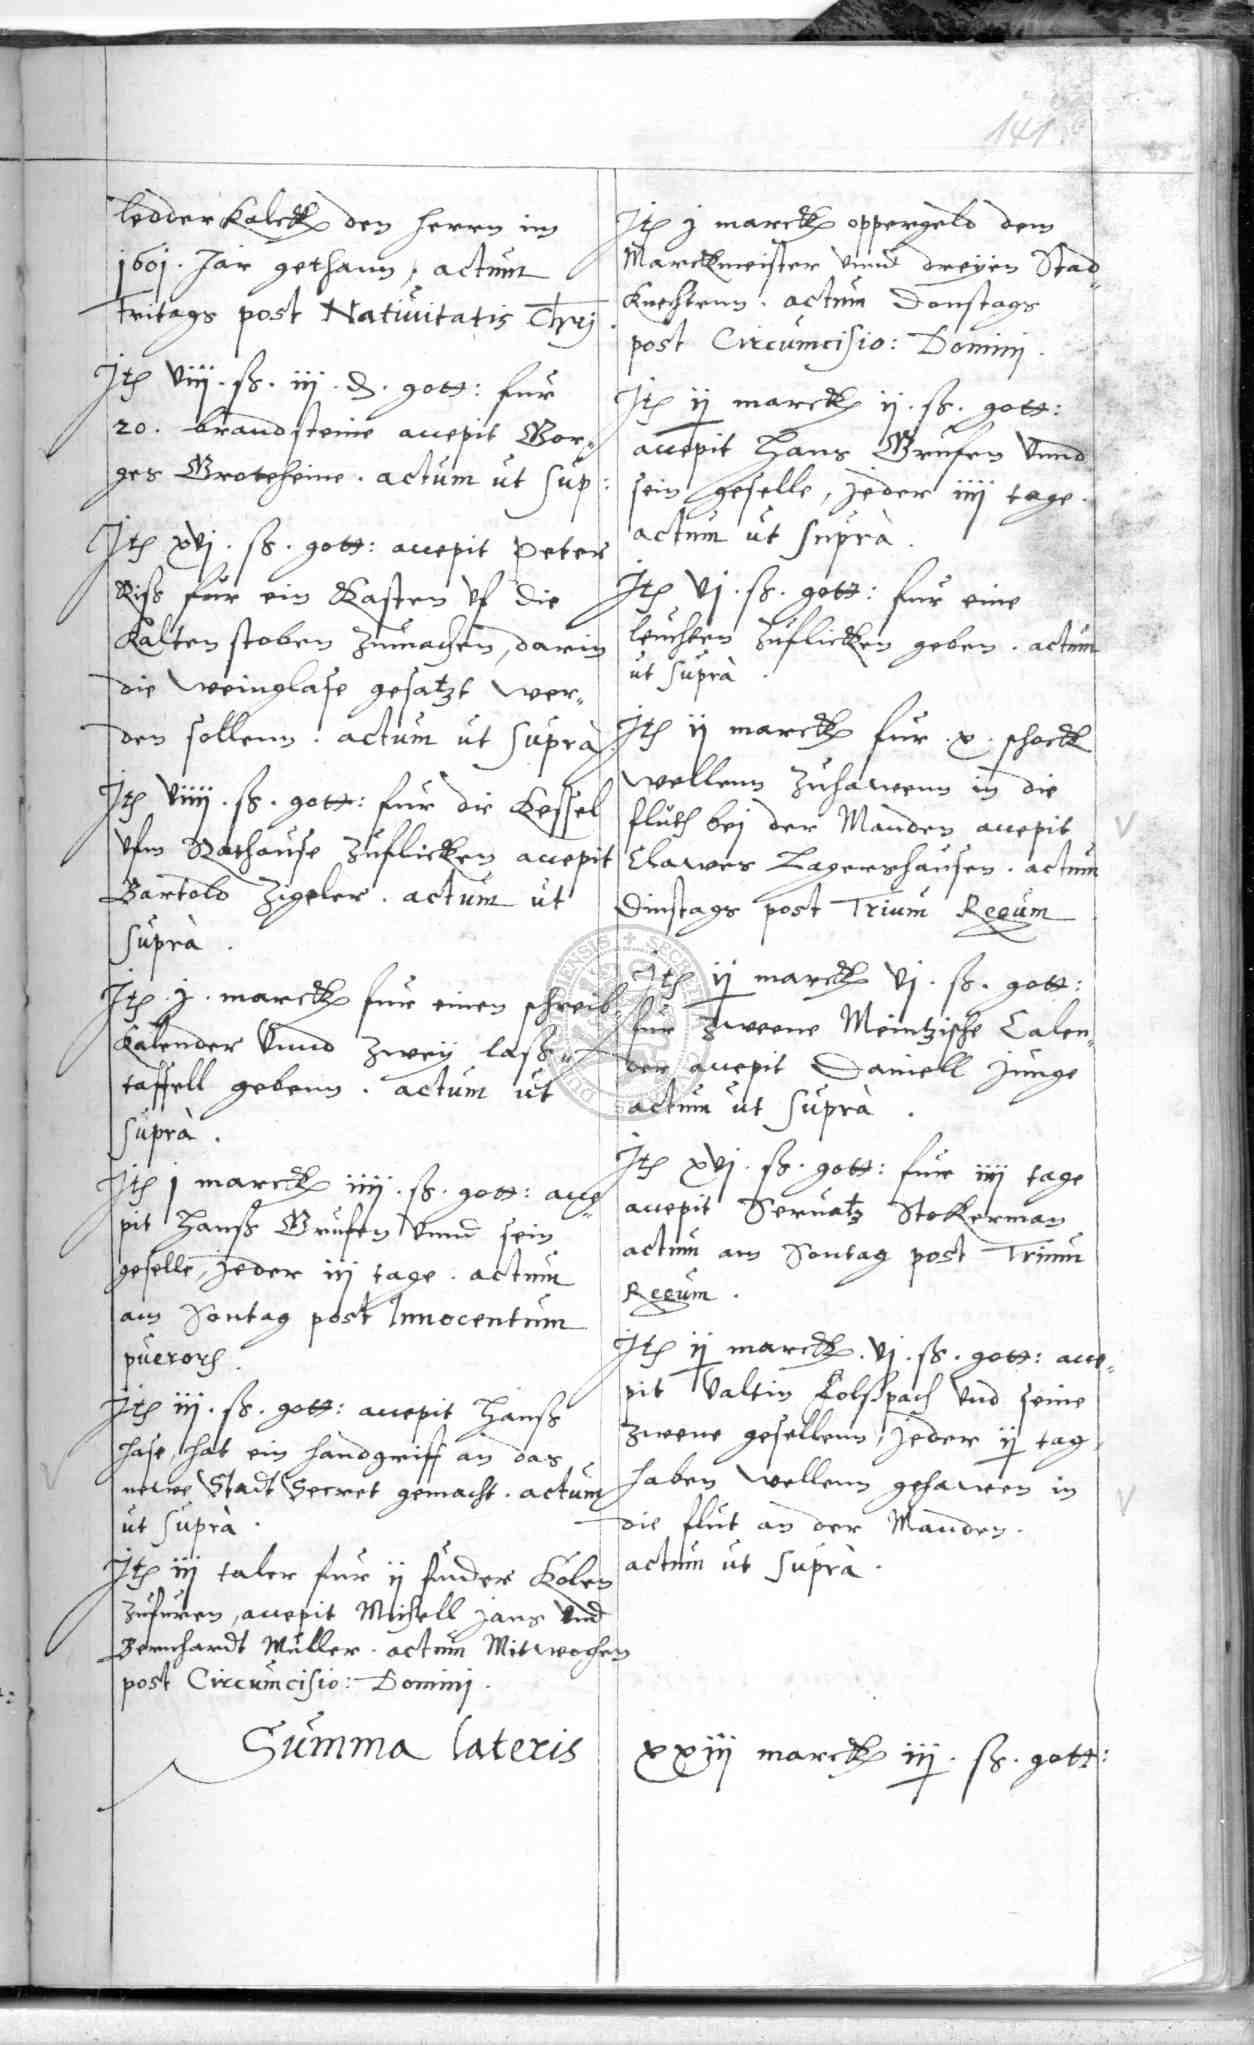 141.
ledderkalck den herrn im
1601. Jar gethann, actum
Fritags post Natiuitatis Chrj
Jtem viij. ß. iij. d. gott: fur
20. brandsteine accepit Bor„
ges Groteheine. actum ut sup:
Jtem xvj. ß. gott: accepit Peter
Riß fur ein Kasten uf die
Kalten stoben zumachen, darin
die weinglase gesatzt wer„
den sollenn. actum ut suprà
Jtem viiij. ß. gott: fur die Kessel
ufm Rathause zuflicken accepit
Bartold Zigeler. actum ut
suprà.
Jtem j. marck fur einen schreib„
Kalender vnnd zwey lass„
taffell gebenn. actum ut
suprà.
Jtem j marck iiij. ß. gott: acce„
pit Hanß Grufen vnnd sein
geselle, jeder iij tage. actum
am Sontag post Innocentum
puerorum.
Jtem iij. ß. gott: accepit Hanß
Hase, hat ein handgriff an das
newe Stadt Secret gemacht. actum
ut suprà.
Jtem iij taler fur ij fuder Kolen
zufuren, accepit Michell Jans vnd
Bernhardt Muller. actum Mitwochen
post Circumcisio: Dominj.
Summa lateris
Jtem j marck oppergeld dem
Marckmeister vnnd dreyen Stad„
Knechtenn. actum Donstags
post Circumcisio: Dominj.
Jtem ij marck ij. ß. gott:
accepit Hans Grufen vnnd
sein geselle, jeder iiij tage.
actum ut suprà.
Jtem vj. ß. gott: fur eine
leuchten zuflicken geben. actum
ut suprà.
Jtem ij marck fur. x. schock
wellenn zuhawenn in die
fluth bej der Manden accepit
Clawes Lagershausen. actum
Dinstags post Trium Regum
Jtem ij marck vj. ß. gott:
fur zweene Meintzische Calen„
der accepit Daniell Junge
actum ut suprà.
Jtem xvj. ß. gott: fur iiij tage
accepit Seruatz Stokerman
actum am Sontag post Trium
Regum.
Jtem ij marck. vj. ß. gott: acce„
pit Valtin Colßpach vnd seine
zwene gesellenn, jeder ij tag,
haben wellenn gehawen in
die flut an der Manden.
actum ut suprà.
xxiij marck iij. ß. gott: